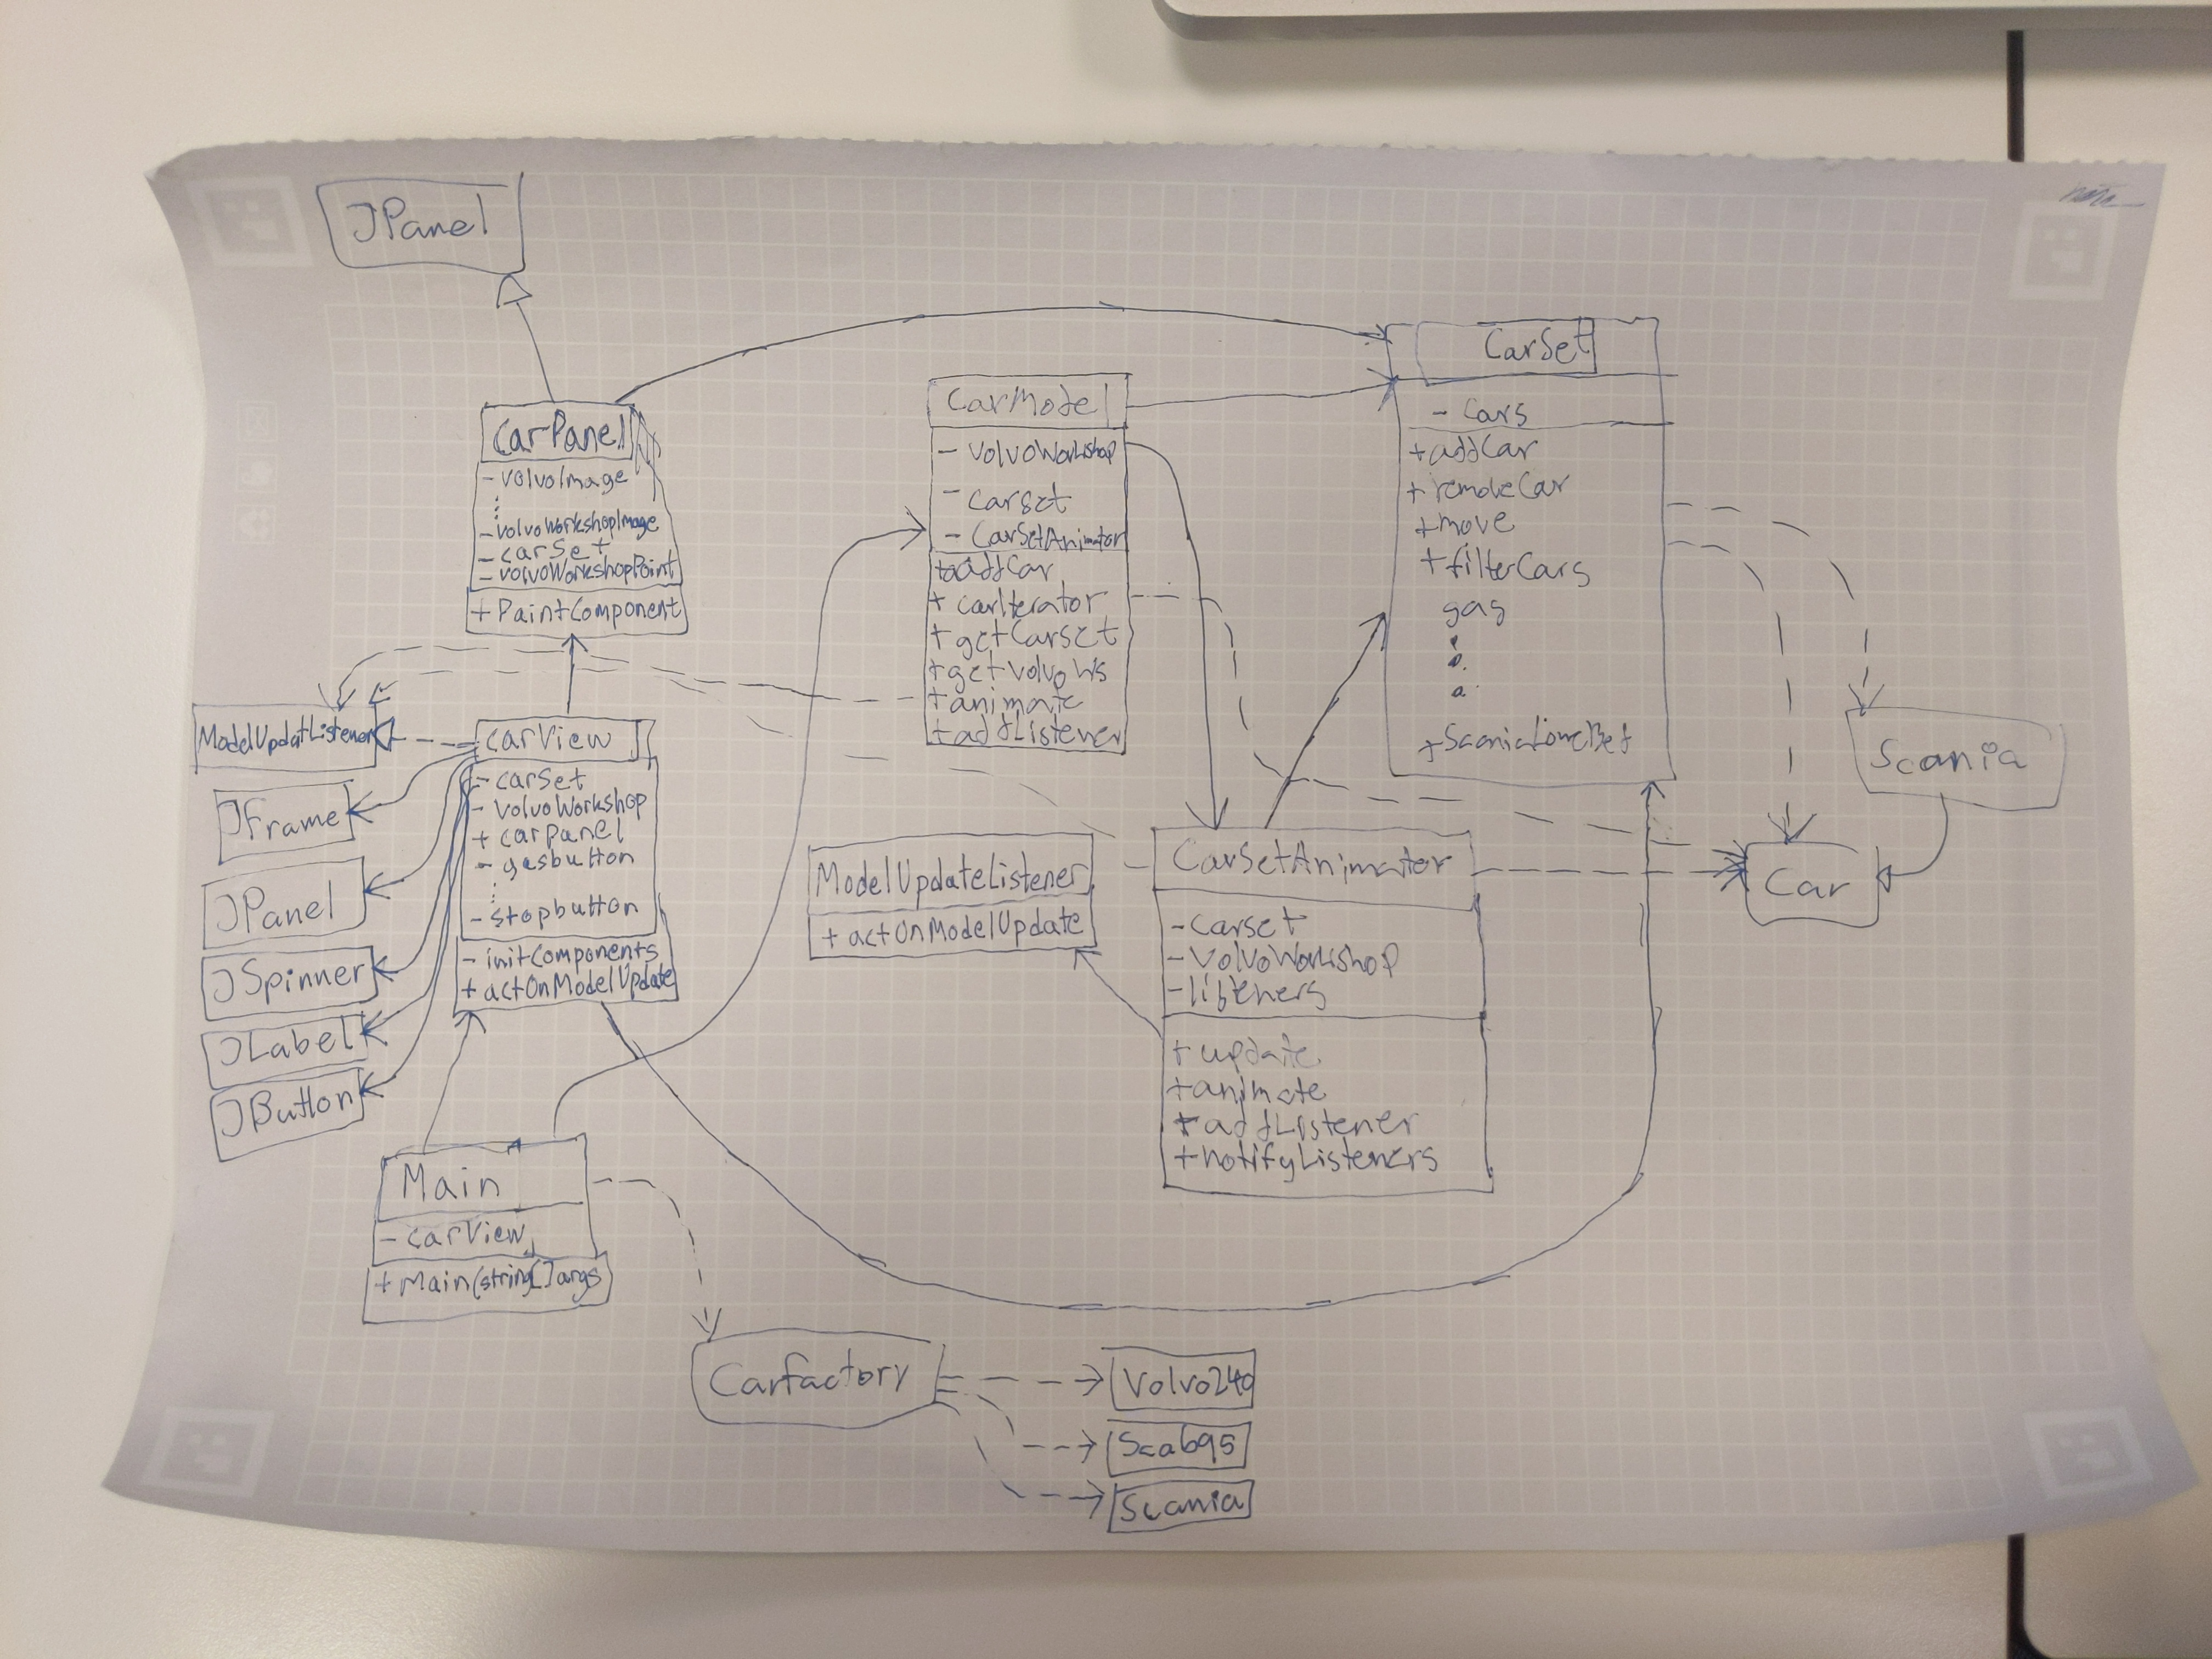 JPanel
CarPanel
- volvoImage
- volvoWorkshopImage
- carSet
- volvoWorkshopPoint
+ PaintComponent
CarModel
- volvoWorkshop
- carset
- CarSetAnimator
+ addCar
+ carIterator
+ getCarset
+ getVolvoWs
+ animate
+ addListener
CarSet
- cars
+ addCar
+ removeCar
+ move
+ filterCars
gas
ModelUpdatListener
JFrame
JPanel
JSpinner
JLabel
JButton
carView
- carSet
- volvoWorkshop
+ carpanel
- gasbutton
- stopbutton
- initComponents
+ actOnModelUpdate
ModelUpdateListener
+ actOnModelUpdate
CarSetAnimator
- carset
- volvoWorkshop
- listeners
+ update
+ animate
+ addListener
+ notifyListeners
Scania
Car
Main
- carView
+ Main(string[]args
Carfactory
Volvo240
Saab95
Scania